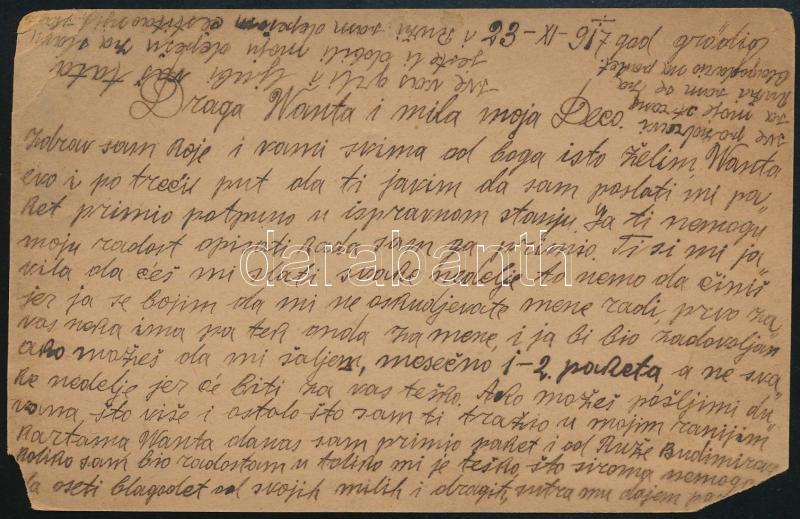 23-XI-917 god
Draga Wanta i mila moja Deco.
Zdrav sam koje i vami svima od boga isto želim, Wanta
evo i po trećil put da ti javim da sam poslati mi pa„
ket primio potpuno u ispravnom stanju. Ja ti nemogu
moju radost opisati kada sam ga primio. Ti si mi ja„
vila da ćeš mi slati svake nedelje to nemo da činiš
jer ja se bojim da mi ne oskudjevate mene radi, prvo za„
vas neka ima pa tek onda za mene, i ja bi bio zadovoljan
ako možeš da mi šaljem, mesečno 1-2. paketa, a ne sva„
ke nedelje jer će biti za vas teško. Ako možeš pošljimi du„
vana, što više i ostolo što sam ti tražio u mojim ranijim
kartama Wanta danas sam primio paket i od Ruže Budimirov
koliko sam bio radostam u toliko mi je teško što siroma nemogu
da oseti blagodet od svojih milih i dragih, sutra mu dajem
sve vas grli i ljubi vaš tata
darabanth